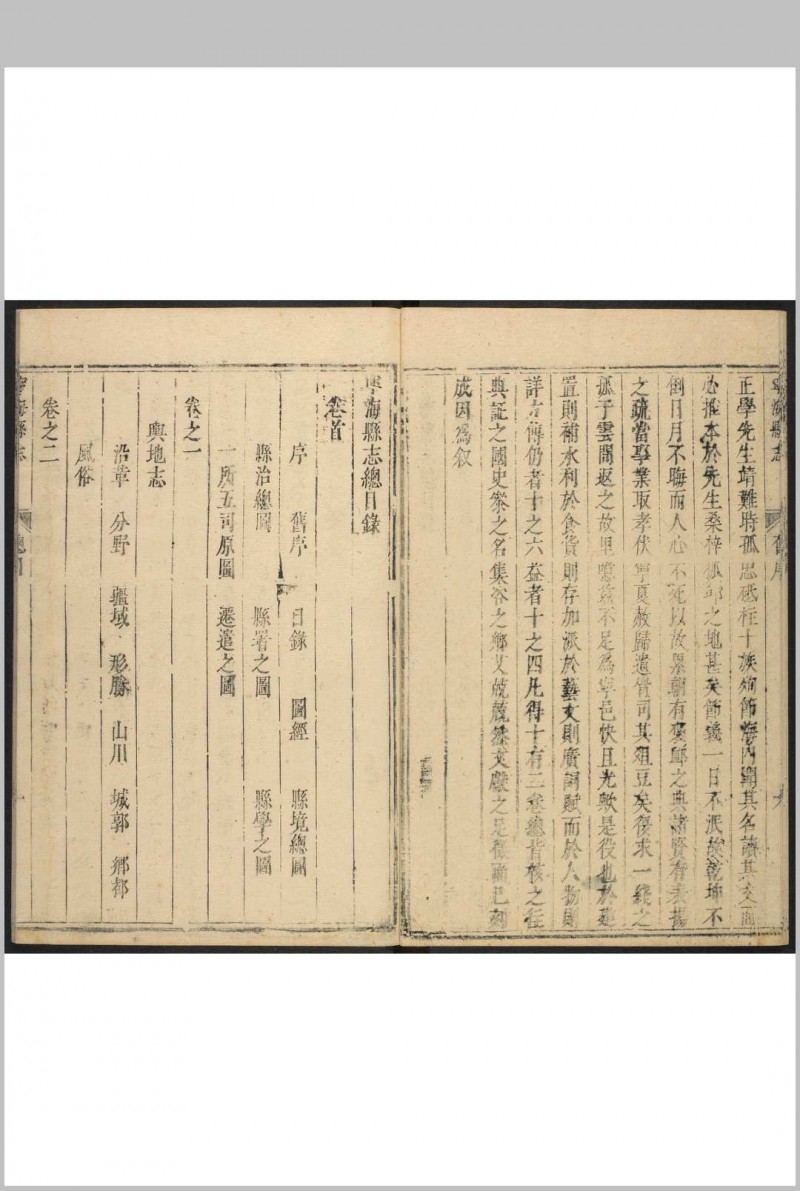 寧海縣志
舊序
正學先生靖難時孤忠砥柱十族殉節海內網其名讀其文
心推本於先生桑梓狐邱之地甚矣節義一日不泯故乾坤不
倒日月不晦而人心不死以故累朝有褒卹之典諸賢有表揚
之疏當事業取孝伕寧夏赦歸遺胥司其俎豆矣復求一綫之
孤于雲間返之故里噫茲不足為寧邑快且光歟是役也於建
置則補水利於食貨則存加派於藝文則廣詞賦而於人物則
詳立傳仍者十之六益者十之四凡得十有二卷總皆核之往
典証之國史叅之名集咨之鄉文兢兢然文獻之足徵爾已刻
成因為叙
寧海縣志總目錄
卷首
序 舊序 目錄 圖經 縣境總圖
縣治總圖 縣署之圖 縣學之圖
一所五司原圖 遷遣之圖
卷之一
輿地志
沿革 分野 疆域 形勝 山川 城郭 鄉都
風俗
卷之二
寧海縣志
總目
一